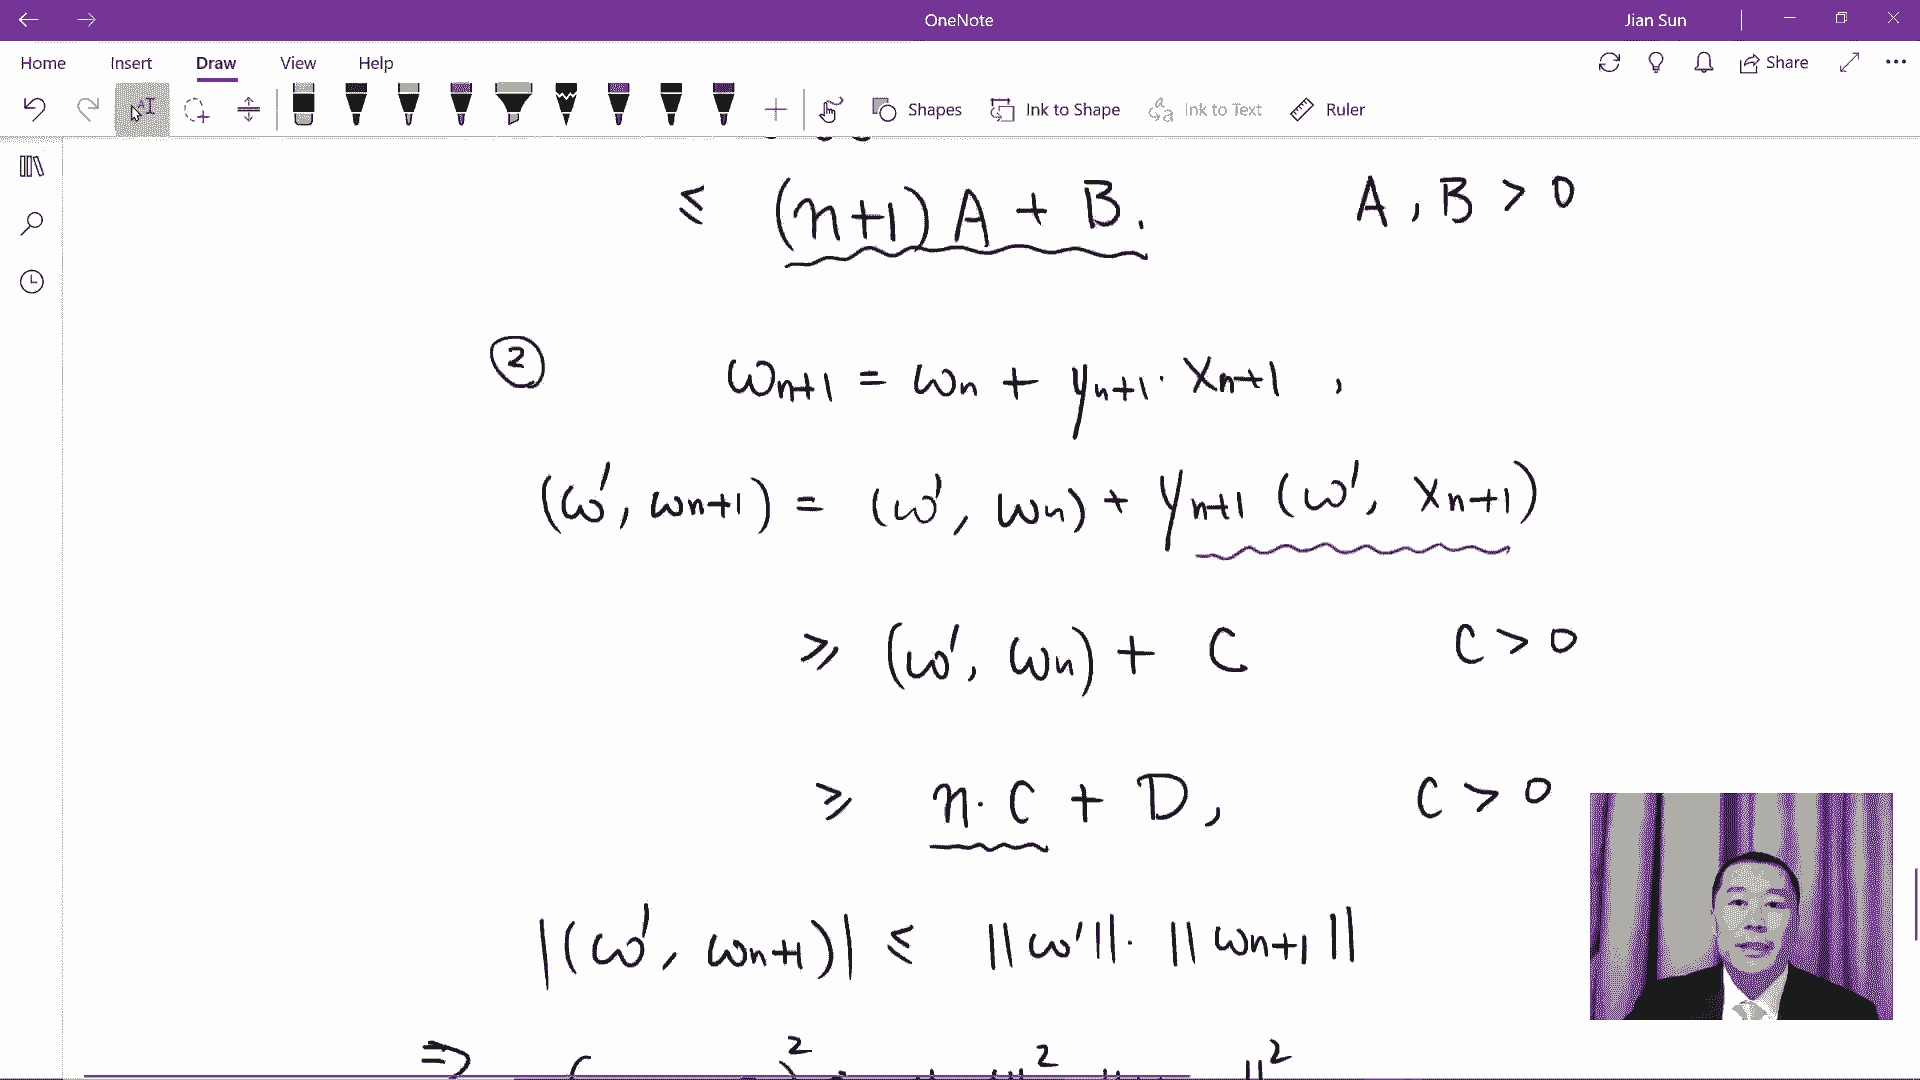 OneNote
Jian Sun
Home Insert Draw View Help
Share
Shapes Ink to Shape Ink to Text Ruler
≤ (n+1) A + B. A, B > 0
② ωn+1 = ωn + yn+1 · xn+1 ,
(ω', ωn+1) = (ω', ωn) + yn+1 (ω', xn+1)
≥ (ω', ωn) + C C > 0
≥ n · C + D, C > 0
|(ω', ωn+1)| ≤ ||ω'|| · ||ωn+1||